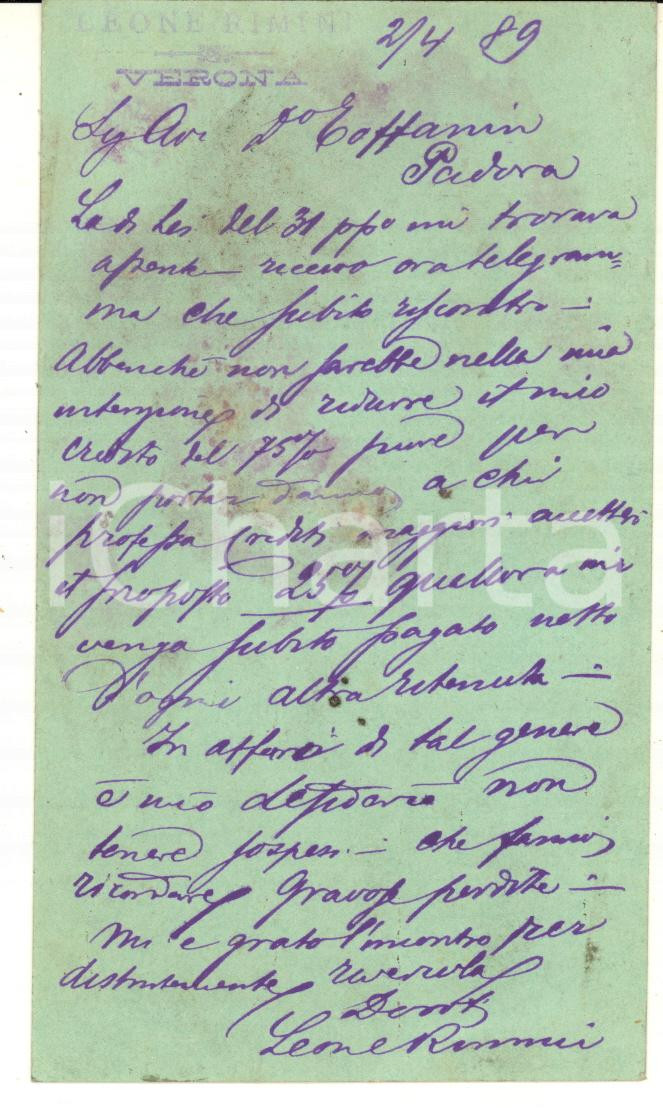 LEONE RIMINI
VERONA
2/4 89
Sig Avv Dr Toffanin
Padova
La di Lei del 31 ppo mi trovava
assente – ricevo ora telegram=
ma che subito riscontro –
Abbenchè non sarebbe nella mia
intenzione di ridurre il mio
credito del 75% pure per
non portar danno a chi
professa crediti maggiori accetterei
il proposto 25% quallora mi
venga subito pagato netto
d'ogni altra ritenuta –
In affari di tal genere
è mio desiderio non
tenere sospesi – che fanno
ricordare gravose perdite –
Mi è grato l'incontro per
distintamente riverirla
Devot
Leone Rimini
iCharta